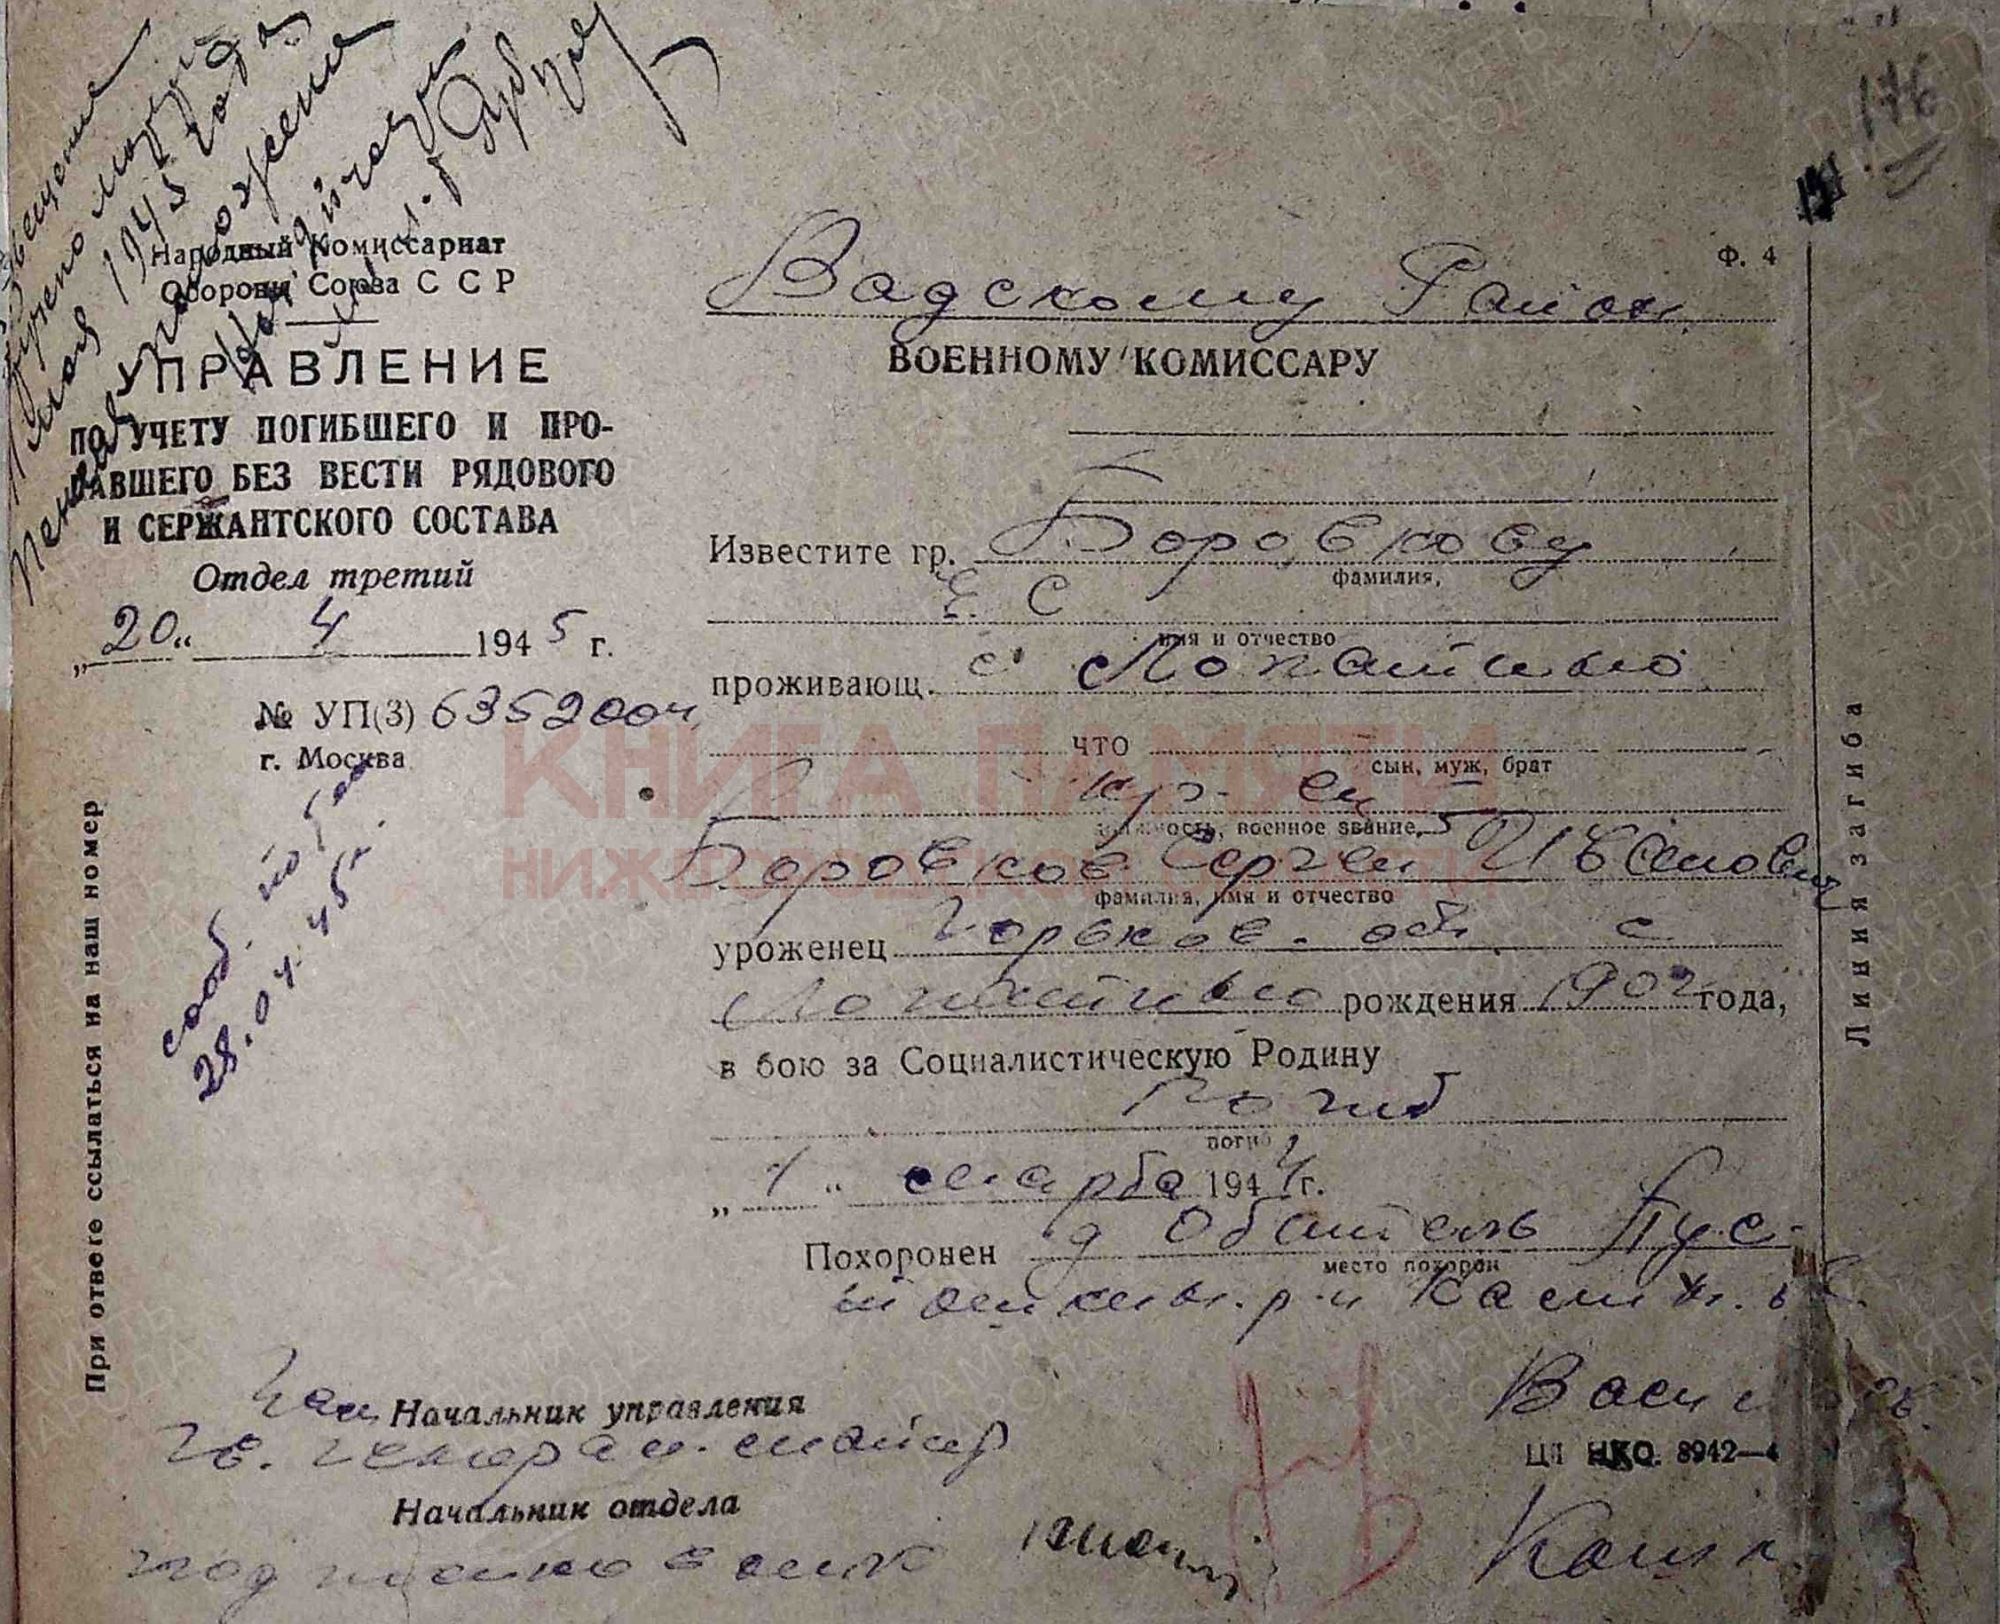 176
Народный Комиссариат
Обороны Союза ССР
УПРАВЛЕНИЕ
ПО УЧЕТУ ПОГИБШЕГО И ПРО-
ПАВШЕГО БЕЗ ВЕСТИ РЯДОВОГО
И СЕРЖАНТСКОГО СОСТАВА
Отдел третий
„20“ 4 1945 г.
№ УП(3) 635200ч
г. Москва
28.04.45г.
При ответе ссылаться на наш номер
Ф. 4
Вадскому Район.
ВОЕННОМУ КОМИССАРУ
Известите гр. Боровкову
фамилия,
Е. С
имя и отчество
проживающ. с Лопатино
что
сын, муж, брат
кр-ец
должность, военное звание,
Боровков Сергей Иванович
фамилия, имя и отчество
уроженец Горьков. об. с
Лопатино рождения 1902 года,
в бою за Социалистическую Родину
погиб
погиб
„1“ марта 1944г.
Похоронен д Обитель Пус-
место похорон
тошкин. р-н Калин.
Линия загиба
Начальник управления
генерал-майор
Начальник отдела
подполковник
ЦЛ НКО. 8942—4
КНИГА ПАМЯТИ
НИЖЕГОРОДСКОЙ ОБЛАСТИ
ПАМЯТЬ
НАРОДА